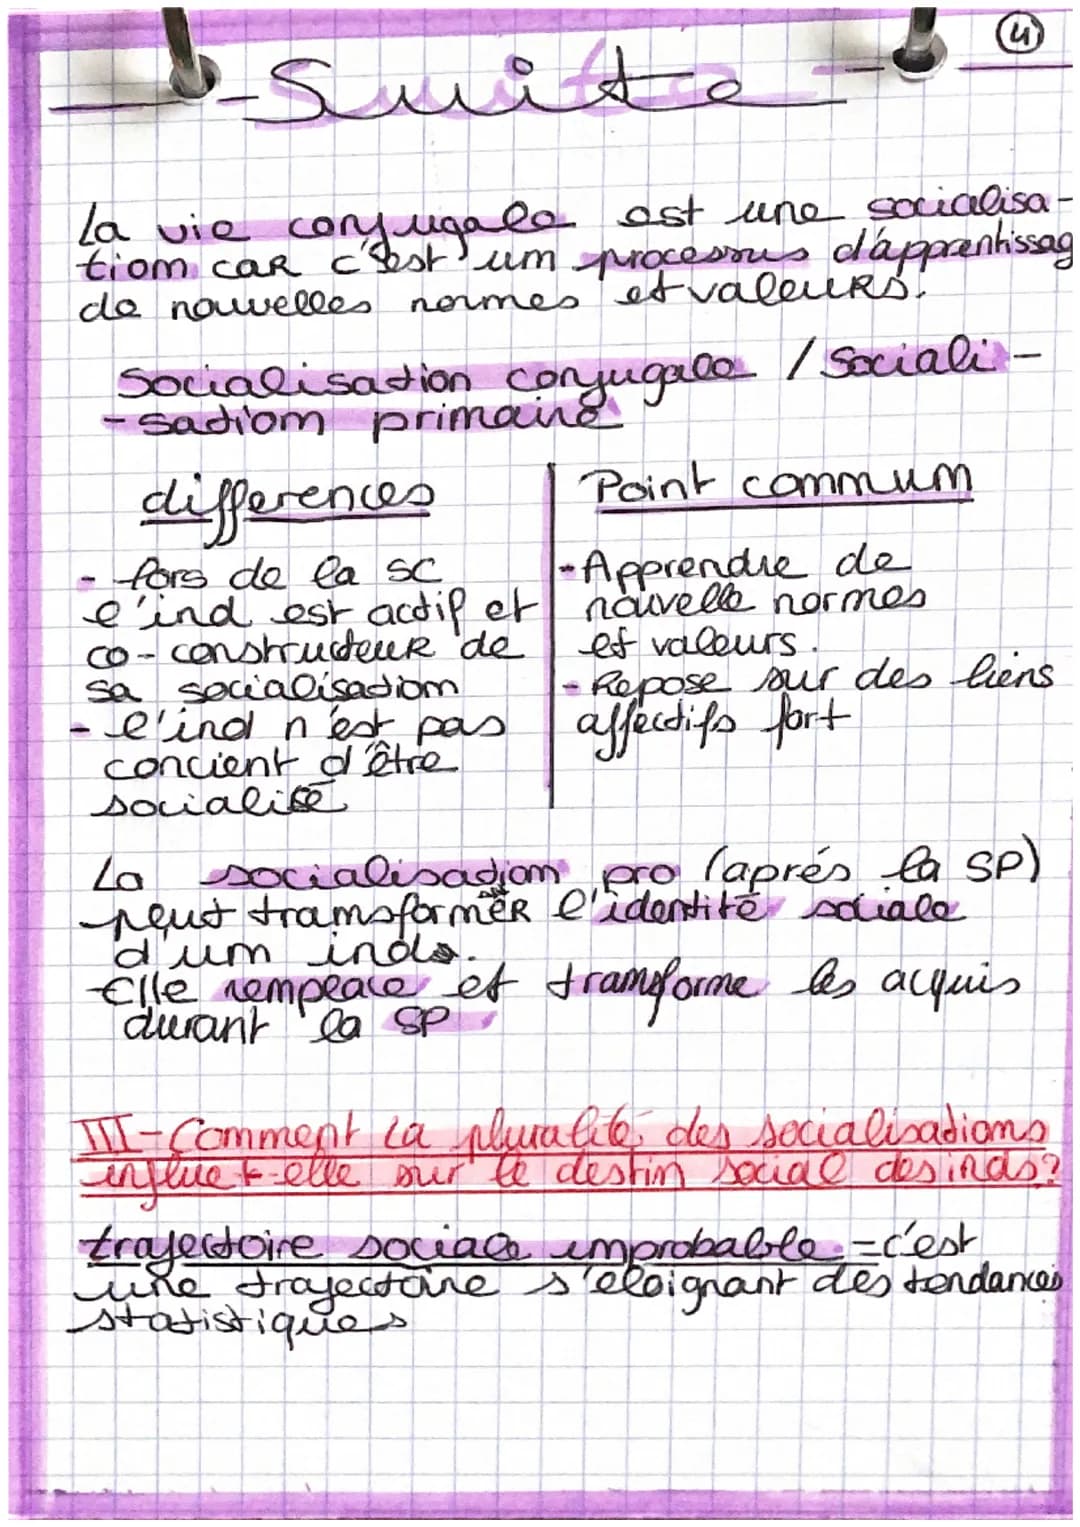 4
- Suite -
La vie conjugale est une socialisa-
tion car c'est un processus d'apprentissag
de nouvelles normes et valeurs.
Socialisation conjugale / Sociali-
-sation primaire
differences
- fors de la SC
l'ind est actif et
co-constructeur de
sa socialisation
- l'ind n'est pas
concient d'être
socialisé
Point commun
- Apprendre de
nouvelle normes
et valeurs.
- Repose sur des liens
affectifs fort
La socialisation pro (aprés la SP)
peut transformer l'identité sociale
d'un inds.
Elle remplace et transforme les acquis
durant la SP
III - Comment la pluralité des socialisations
influe t-elle sur le destin social des inds?
trajectoire sociale improbable = c'est
une trajectoire s'eloignant des tendances
statistiques